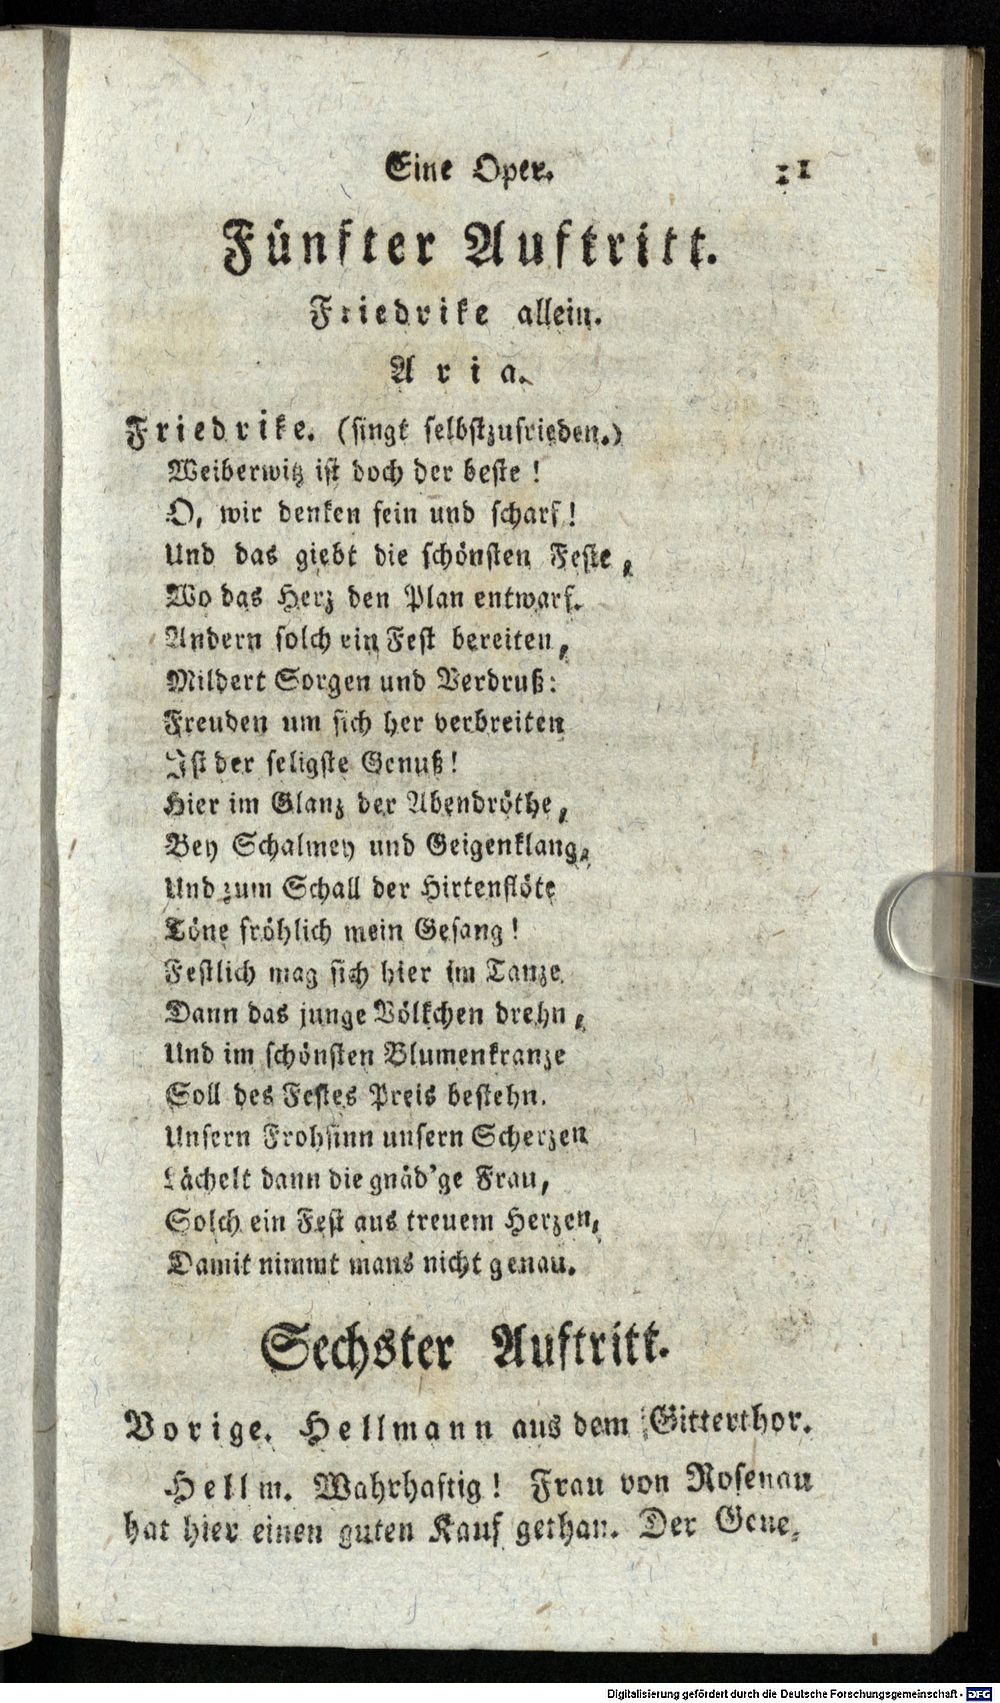 Eine Oper. 11
Fünfter Auftritt.
Friedrike allein.
Aria.
Friedrike. (singt selbstzufrieden.)
Weiberwitz ist doch der beste!
O, wir denken fein und scharf!
Und das giebt die schönsten Feste,
Wo das Herz den Plan entwarf.
Andern solch ein Fest bereiten,
Mildert Sorgen und Verdruß:
Freuden um sich her verbreiten
Ist der seligste Genuß!
Hier im Glanz der Abendröthe,
Bey Schalmey und Geigenklang,
Und zum Schall der Hirtenflöte
Töne fröhlich mein Gesang!
Festlich mag sich hier im Tanze
Dann das junge Völkchen drehn,
Und im schönsten Blumenkranze
Soll des Festes Preis bestehn.
Unsern Frohsinn unsern Scherzen
Lächelt dann die gnäd'ge Frau,
Solch ein Fest aus treuem Herzen,
Damit nimmt mans nicht genau.
Sechster Auftritt.
Vorige. Hellmann aus dem Gitterthor.
Hellm. Wahrhaftig! Frau von Rosenau
hat hier einen guten Kauf gethan. Der Gene-
Digitalisierung gefördert durch die Deutsche Forschungsgemeinschaft - DFG